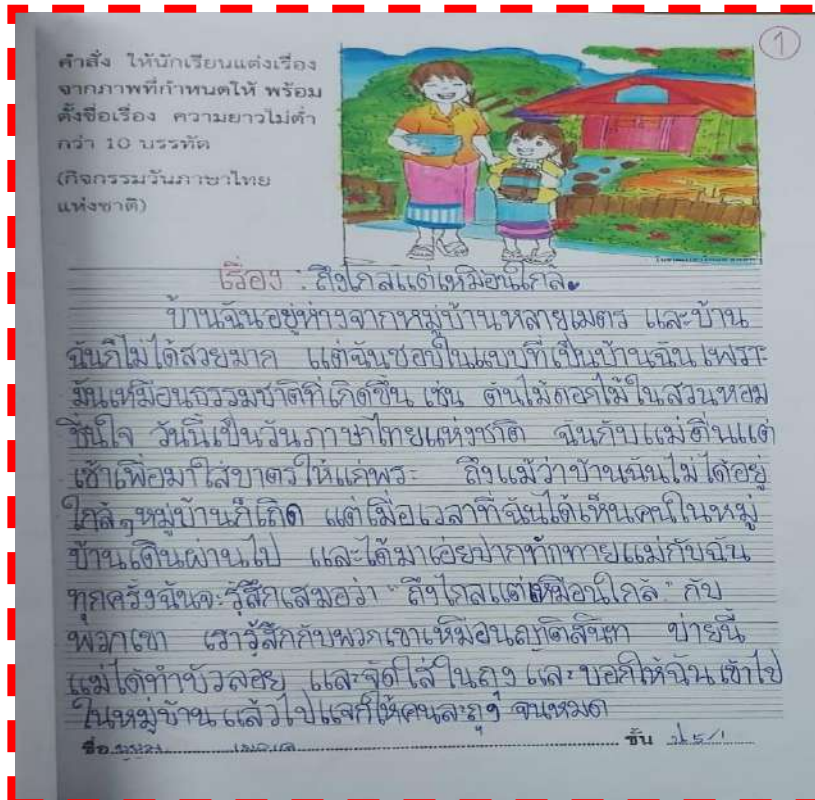 1
คำสั่ง ให้นักเรียนแต่งเรื่อง
จากภาพที่กำหนดให้ พร้อม
ตั้งชื่อเรื่อง ความยาวไม่ต่ำ
กว่า 10 บรรทัด
(กิจกรรมวันภาษาไทย
แห่งชาติ)
เรื่อง : ถึงไกลแต่เหมือนใกล้
บ้านฉันอยู่ห่างจากหมู่บ้านหลายเมตร และบ้าน
ฉันก็ไม่ได้สวยมาก แต่ฉันชอบในแบบที่เป็นบ้านฉัน เพราะ
มันเหมือนธรรมชาติที่เกิดขึ้น เช่น ต้นไม้ดอกไม้ในสวนหอม
ชื่นใจ วันนี้เป็นวันภาษาไทยแห่งชาติ ฉันกับแม่ตื่นแต่
เช้าเพื่อมาใส่บาตรให้แก่พระ ถึงแม้ว่าบ้านฉันไม่ได้อยู่
ใกล้ๆหมู่บ้านก็เถิด แต่เมื่อเวลาที่ฉันได้เห็นคนในหมู่
บ้านเดินผ่านไป และได้มาเอ่ยปากทักทายแม่กับฉัน
ทุกครั้งฉันจะรู้สึกเสมอว่า "ถึงไกลแต่เหมือนใกล้" กับ
พวกเขา เรารู้สึกกับพวกเขาเหมือนญาติสนิท บ่ายนี้
แม่ได้ทำบัวลอย และจัดใส่ในถุง และบอกให้ฉันเข้าไป
ในหมู่บ้าน แล้วไปแจกให้คนละถุงๆ จนหมด
ชื่อ ชั้น ป.5/